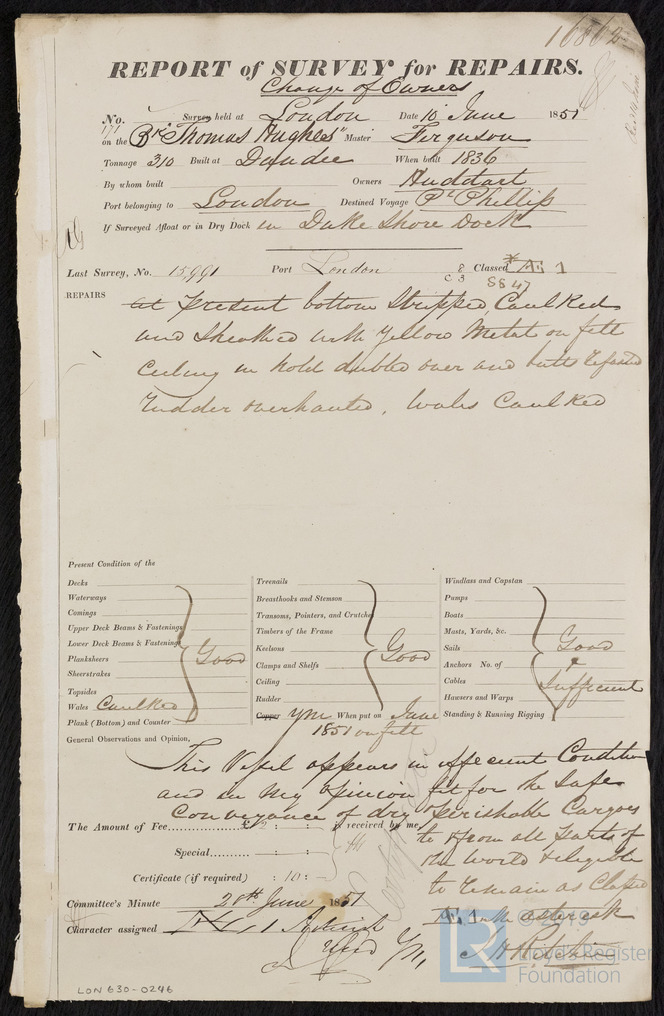 16862
REPORT of SURVEY for REPAIRS.
Change of Owners
No. 171 Survey held at London Date 10 June 1851
on the Bk "Thomas Hughes" Master Ferguson
Tonnage 310 Built at Dundee When built 1836
By whom built Owners Huddart
Port belonging to London Destined Voyage Pt Phillip
If Surveyed Afloat or in Dry Dock in Duke Shore Dock
Last Survey, No. 15,991 Port London Classed * Æ 1
REPAIRS at present bottom Stripped, Caulked
and Sheathed with Yellow Metal on felt
Ceiling in hold dubbed over and butts
Rudder overhauled, Wales Caulked
Present Condition of the
Decks
Waterways
Comings
Upper Deck Beams & Fastenings
Lower Deck Beams & Fastenings
Planksheers
Sheerstrakes
Topsides
Good
Wales Caulked
Plank (Bottom) and Counter
Treenails
Breasthooks and Stemson
Transoms, Pointers, and Crutches
Timbers of the Frame
Keelsons
Clamps and Shelfs
Ceiling
Rudder
Good
Copper YM When put on June
1851 on felt
Windlass and Capstan
Pumps
Boats
Masts, Yards, &c.
Sails
Anchors No. of
Cables
Hawsers and Warps
Standing & Running Rigging
Good
&
Sufficient
General Observations and Opinion,
This Vessel appears in efficient Condition
and in my opinion fit for the Safe
Conveyance of dry & perishable Cargoes
to & from all parts of
the World & eligible
to remain as Classed
Æ 1 with asterisk
The Amount of Fee £ : : received by me
Special : :
Certificate (if required) : 10 :
Committee's Minute 20th June 1851
Character assigned Æ 1
LON 630-0246
© 2019
LR
Lloyd's Register
Foundation